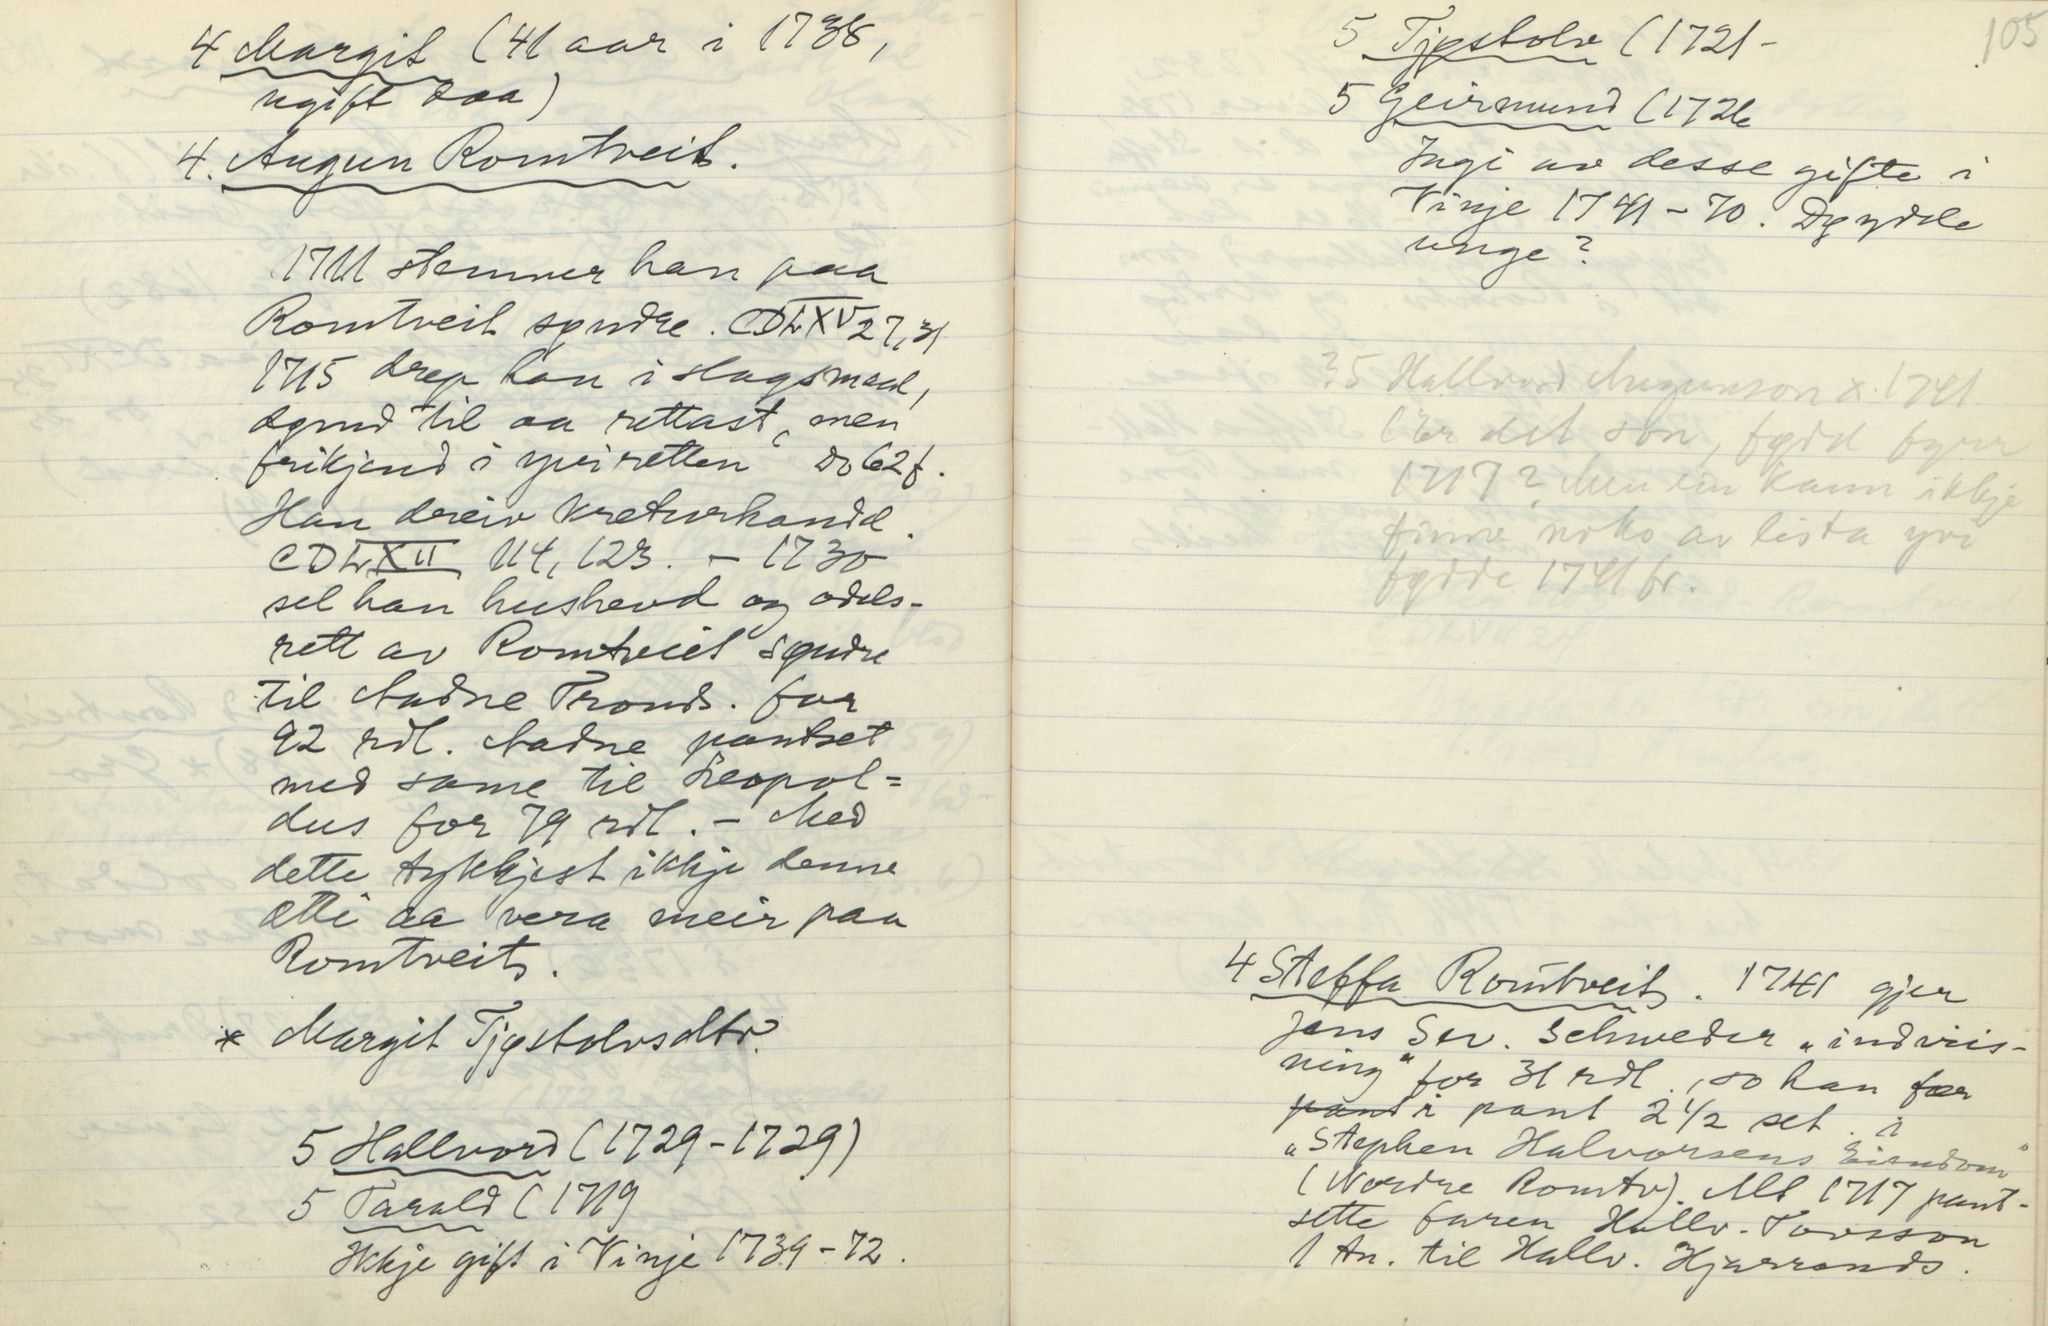 4 Margit (41 aar i 1738,
ugift daa)
4. Augun Romtveit.
1711 stemner han paa
Romtveit syndre. CDLXV 27, 31
1715 drep han i slagsmaal,
dømd til aa rettast, men
frikjend i yviretten Do 62 f.
Han dreiv kreturhandel.
CDLXII 114, 123. – 1730
sel han hushevd og odels-
rett av Romtveit syndre
til Aadne Tronds. for
92 rdl. Aadne pantset
med same til Leopol=
dus for 79 rdl. – Med
dette tykkjest ikkje denne
ætti aa vera meir paa
Romtveit.
* Margit Tjøstolvsdtr.
5 Hallvord (1729–1729)
5 Tarald (1719
Ikkje gift i Vinje 1739–72.
105
5 Tjøstolv (1721 –
5 Geirmund (1726
Ingi av desse gifte i
Vinje 1741–70. Døydde
unge?
?5 Hallvord Augunson x. 1741
(Er det son, fødd fyrr
1717? Men ein kann ikkje
finne noko av lista yvi
fødde 1741 fr.
4 Steffa Romtveit. 1741 gjer
Jens Sev. Schweder „indviis-
ning" for 31 rdl., so han fær
pant i pant 2 1/2 set. i
„Stephen Halvorsens Eiendom"
(Nordre Romtv). Alt 1717 pant-
sette faren Hallv. Tovsson
1 tn. til Hallv. Hjarrands.